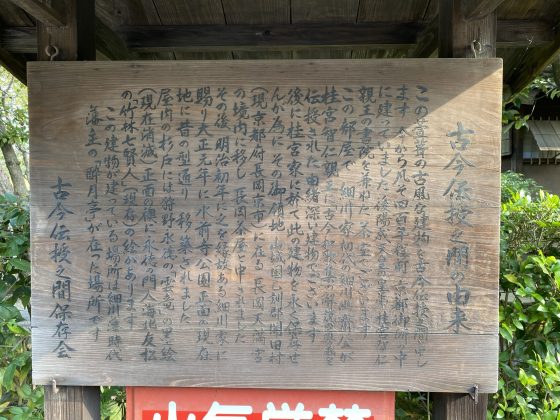 古今伝授之間の由来
この萱葺の古風な建物を古今伝授之間と申し
ます 今から凡そ四百年位前 京都御所の中
に建っていました 後陽成天皇の弟 桂宮智仁
親王の書院を兼ねた茶室でございます
この部屋で 細川家初代の細川幽斎公が
桂宮智仁親王に古今和歌集の解説の奥義を
伝授された由緒深い建物でございます
後に桂宮家に於て此の建物を永く保存せ
んが為にその御領地山城国乙訓郡開田村
(現京都府長岡京市)に在る長岡天満宮
の境内に移し 長岡茶屋と申されました
その後 明治初年に之を縁故ある細川家に
賜り 大正元年に水前寺公園正面の現在
地に昔の型通り移築されました
屋内の杉戸には狩野永徳の雲竜の墨絵
(現在消滅) 正面の襖に永徳の門人海北友松
の「竹林七賢人」(現存)の絵があります
この建物が建っている場所は細川藩時代
藩主の酔月亭が在った場所です
古今伝授之間保存会
火気厳禁